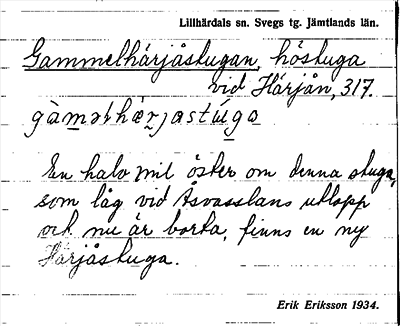 Lillhärdals sn. Svegs tg. Jämtlands län.
Gammelhärjåstugan, höstuga
vid Härjån, 317.
En halv mil öster om denna stuga,
som låg vid Åsvasslans utlopp
och nu är borta, finns en ny
Härjåstuga.
Erik Eriksson 1934.